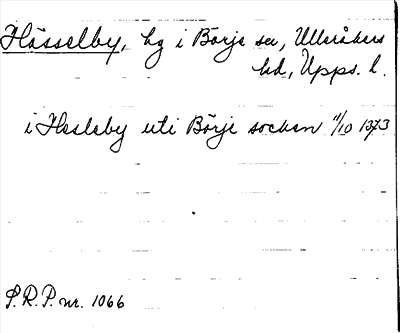 Hässelby, hg i Börje sn, Ulleråkers
hd, Upps. l.
i Hesleby uti Börje socken 11/10 1373
S.R.P. nr. 1066